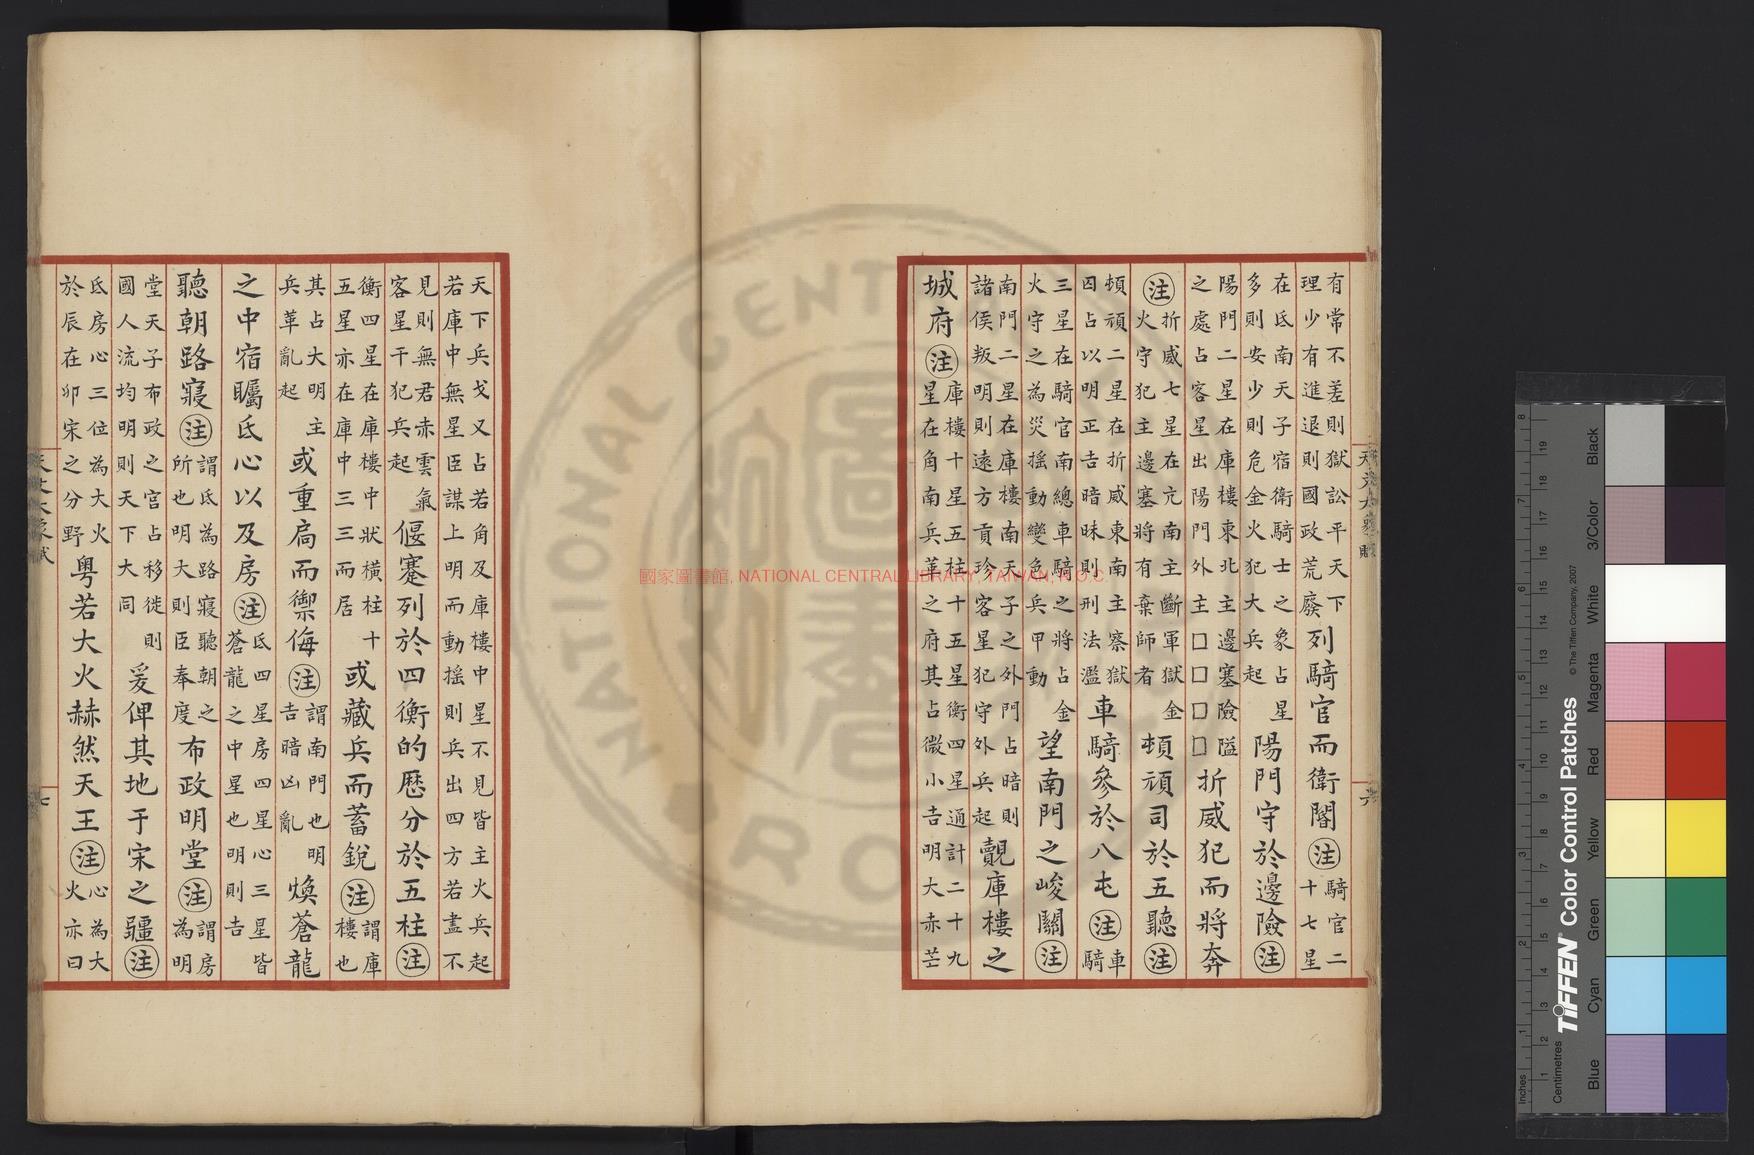 有常不差則獄訟平天下
理少有進退則國政荒廢
列騎官而衛閣注
騎官二
十七星
在氐南天子宿衛騎士之象占星
多則安少則危金火犯大兵起
陽門守於邊險注
陽門二星在庫樓東北主邊塞險隘
之處占客星出陽門外主□□□□
折威犯而將奔
注
折威七星在亢南主斷軍獄金
火守犯主邊塞將有棄師者
頓頑司於五聽注
頓頑二星在折威東南主察獄
囚占以明正吉暗昧則刑法濫
車騎參於八屯注
車
騎
三星在騎官南總車騎之將占金
火守之為災搖動變色兵甲動
望南門之峻關注
南門二星在庫樓南天子之外門占暗則
諸侯叛明則遠方貢珍客星犯守外兵起
覿庫樓之
城府注
庫樓十星五柱十五星衡四星通計二十九
星在角南兵革之府其占微小吉明大赤芒
天下兵戈又占若角及庫樓中星不見皆主火兵起
若庫中無星臣謀上明而動搖則兵出四方若晝不
見則無君赤雲氣
客星干犯兵起
偃蹇列於四衡的歷分於五柱注
衡四星在庫樓中狀橫柱十
五星亦在庫中三三而居
或藏兵而蓄銳注
謂庫
樓也
其占大明主
兵革亂起
或重扃而禦侮注
謂南門也明
吉暗凶亂
煥蒼龍
之中宿矚氐心以及房注
氐四星房四星心三星皆
蒼龍之中星也明則吉
聽朝路寢注
謂氐為路寢聽朝之
所也明大則臣奉度
布政明堂注
謂房
為明
堂天子布政之宫占移徙則
國人流均明則天下大同
爰俾其地于宋之疆注
氐房心三位為大火
於辰在卯宋之分野
粤若大火赫然天王注
心為大
火亦曰
國家圖書館, NATIONAL CENTRAL LIBRARY, TAIWAN, R.O.C.
NATIONAL CENTRAL
R.O.C.
TIFFEN Color Control Patches
© The Tiffen Company, 2007
Centimetres
Inches
Blue
Cyan
Green
Yellow
Red
Magenta
White
3/Color
Black